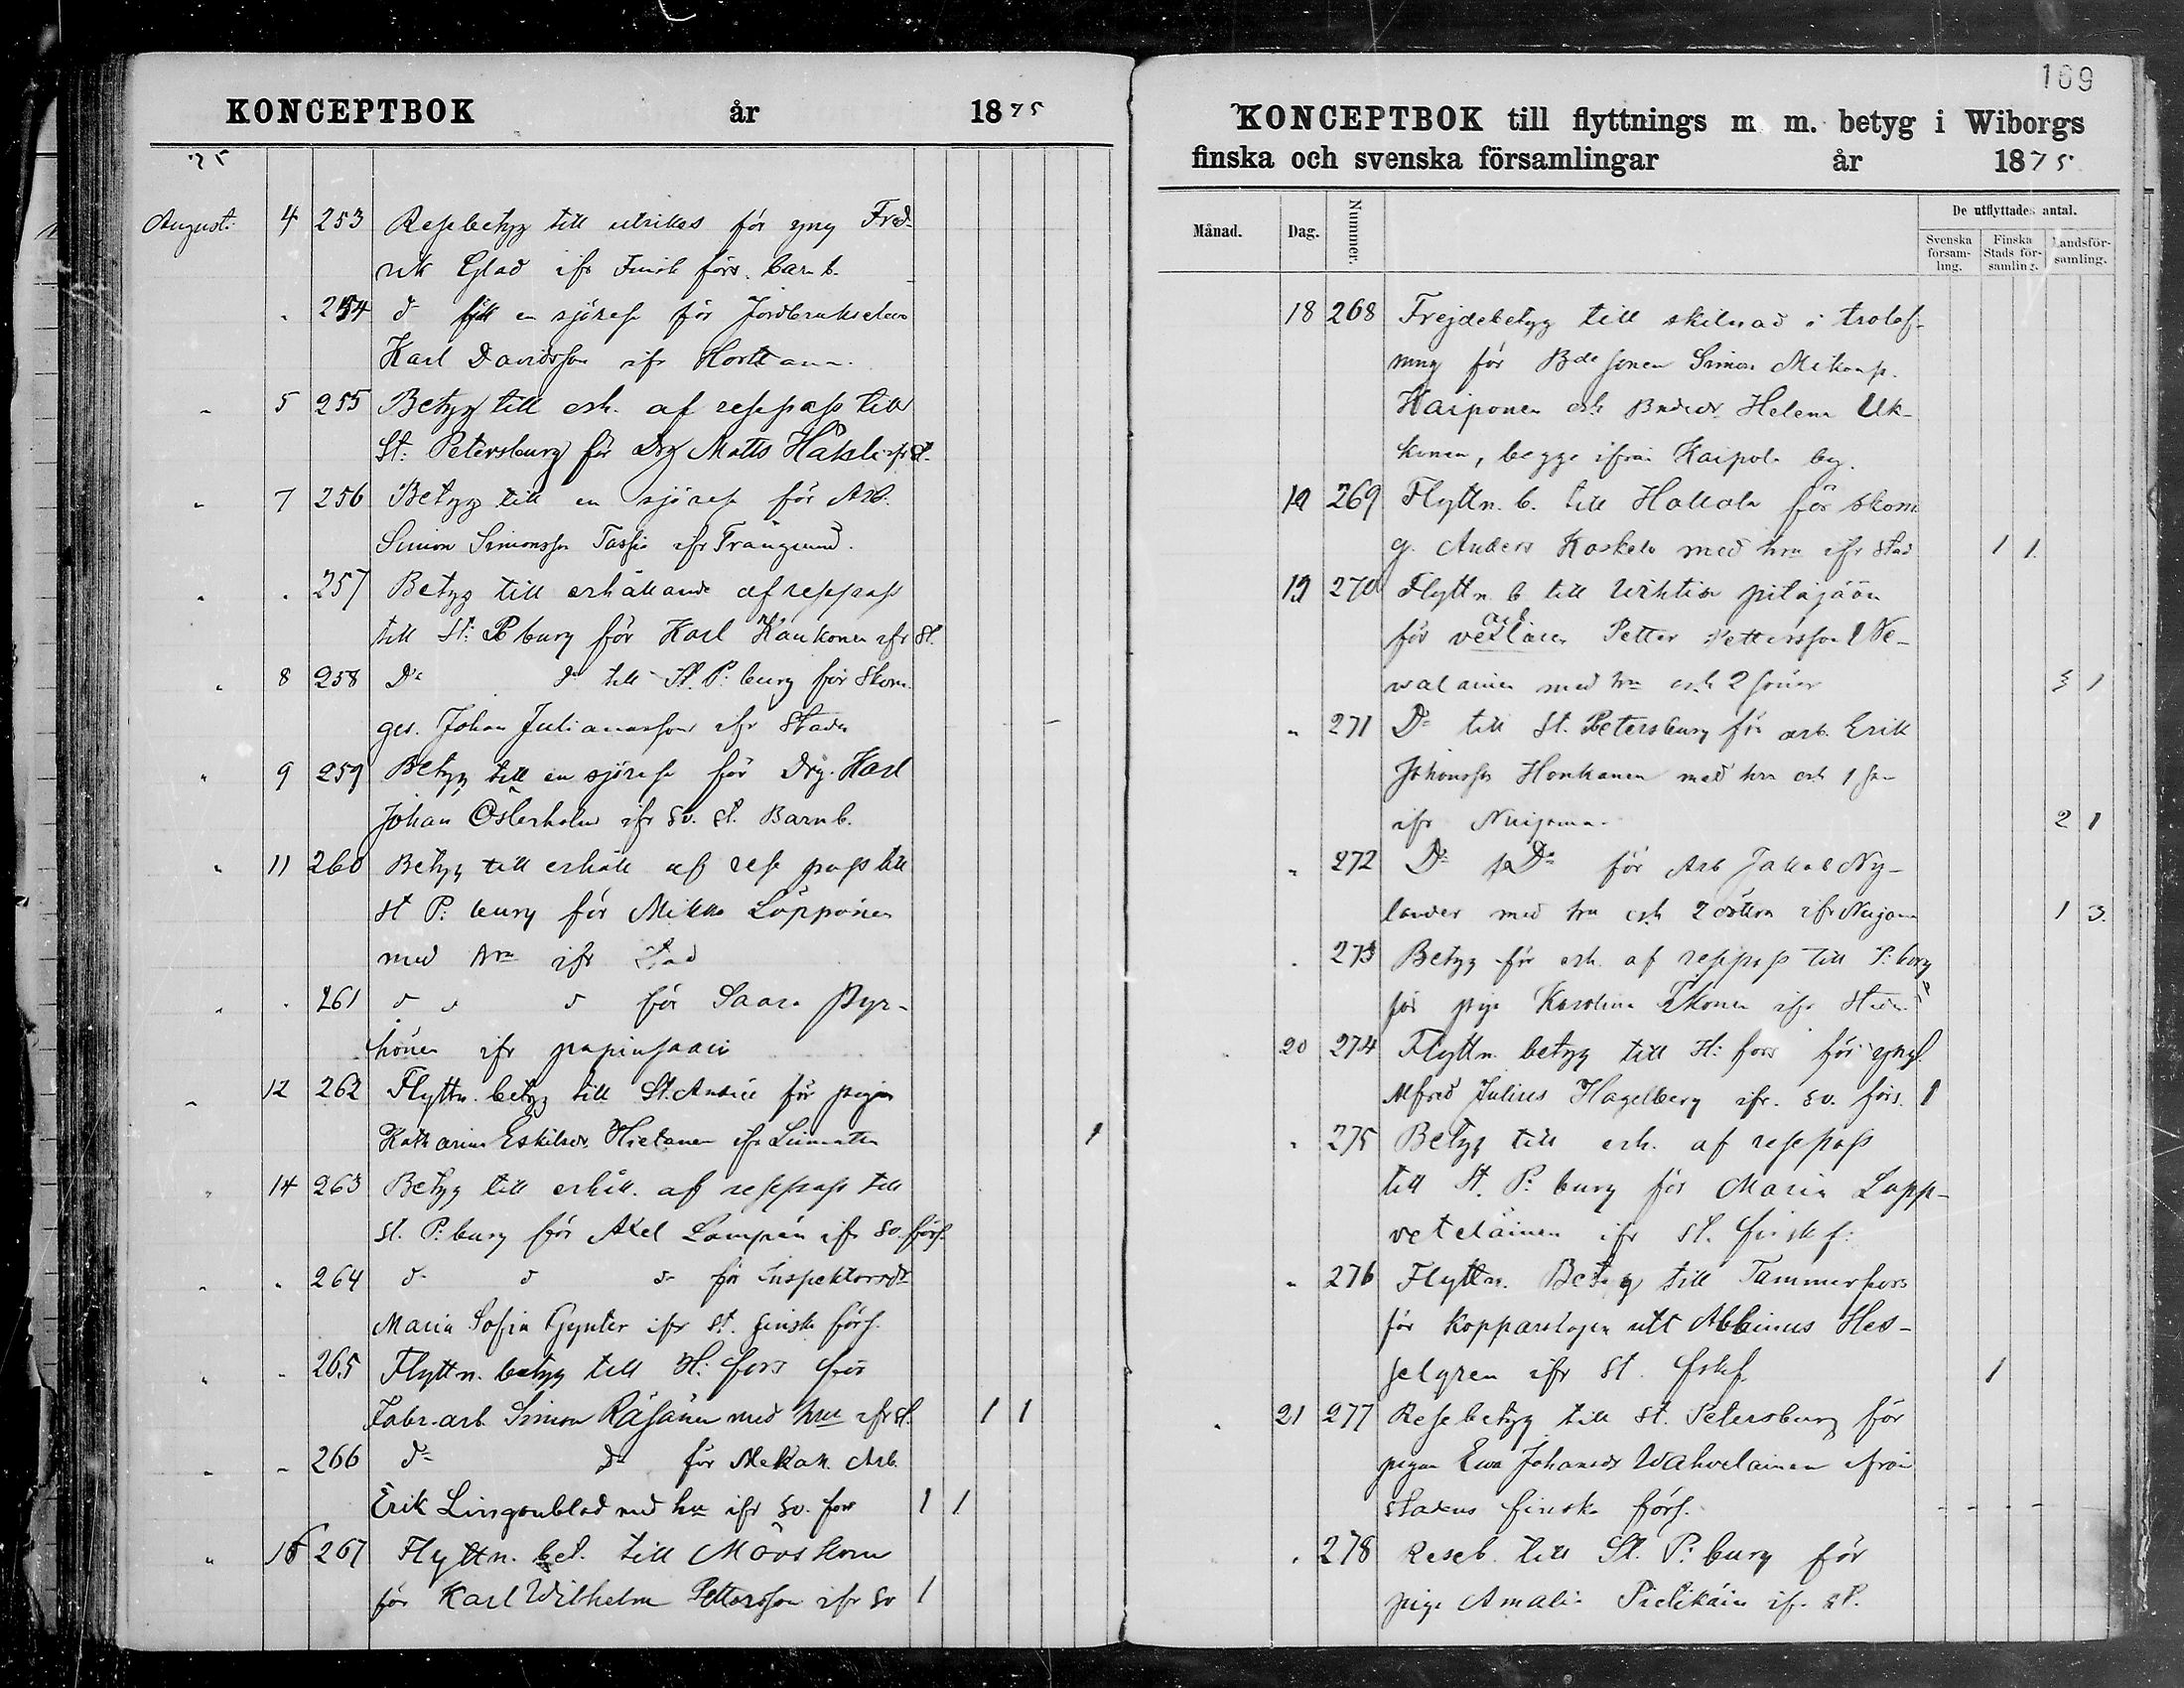 KONCEPTBOK år 1875
75
August. 4 253 Resebetyg till utrikes för yng Fred-
rik Glad ifr Finsk förs. barnb.
" 254 d till en sjöresa för Jordbrukselev
Karl Davidsson ifr Horttana.
" 5 255 Betyg till erh. af resepass till
St. Petersburg för Drg Matts Häkli ifr St.
" 7 256 Betyg till en sjöresa för Arb.
Simon Simonsson Tassia ifr Trångsund.
" " 257 Betyg till erhållande af resepass
till St: Pburg för Karl Kaukonen ifr St.
" 8 258 Do do till St. P:burg för Skom.
ges. Johan Julianasson ifr Staden
" 9 259 Betyg till en sjöresa för Drg. Karl
Johan Österholm ifr Sv. st. Barnb.
" 11 260 Betyg till erhåll af rese pass till
St P:burg för Mikko Löppönen
med hru ifr Stad
" " 261 d d d för Saara Pyy-
könen ifr papinsaari
" 12 262 Flyttn. betyg till St. Andreæ för pigan
Katharina Eskilsdr Hietanen ifr Liimatta 1
" 14 263 Betyg till erhåll. af resepass till
St. P:burg för Axel Lampén ifr Sv. förs.
" " 264 d d d för Inspektorsdr
Maria Sofia Gynter ifr St. finska förs.
" " 265 Flyttn. betyg till H:fors för
Fabr. arb. Simon Räsänen med hru ifr st. 1 1
" " 266 do do för Mekan. Arb.
Erik Lingonblad md hu ifr Sv. fors 1 1
" 16 267 Flyttn. bet. till Mövskom
för Karl Wilhelm Pettersson ifr Sv 1
169
KONCEPTBOK till flyttnings m. m. betyg i Wiborgs
finska och svenska församlingar år 1875
Månad. Dag. Nummer. De utflyttades antal.
Svenska församling. Finska Stads församling. Landsförsamling.
18 268 Frejdebetyg till skilnad i trolof-
ning för Bdesonen Simon Mikonp.
Kaiponen och Bndedr Helena Uk-
konen, begge ifrån Kaipola by.
19 269 Flyttn. b. till Hollola för skom
g. Anders Koskela med hru ifr Stad 1 1
19 270 Flyttn. b till Wihtis pitäjään
för Petter Pettersson Ne-
valainen med hru och 2 söner 3 1
" 271 Do till St. Petersburg för arb. Erik
Johansson Honkanen med hru och 1 son
ifr Nuijama. 2 1
" 272 Do Do för Arb Jakob Ny-
lander med hru och 2 döttrar ifr Nuijama 1 3.
" 273 Betyg för erh. af resepass till P:borg
för piga Karolina Ikonen ifr Staden
20 274 Flyttn. betyg till H:fors för yngl.
Alfred Julius Hagelberg ifr. Sv. förs. 1
" 275 Betyg till erh. af resepass
till St. P:burg för Maria Lapp-
veteläinen ifr St. finsk f:
" 276 Flyttn. Betyg till Tammerfors
för Kopparslagen utt Albinus Hes-
selgren ifr St. fskf. 1
" 21 277 Resebetyg till St. Petersburg för
pigan Eva Johansdr Wahvelainen ifrån
stadens finska förs.
" 278 Reseb. till St. P:burg för
piga Amalia ifr st.